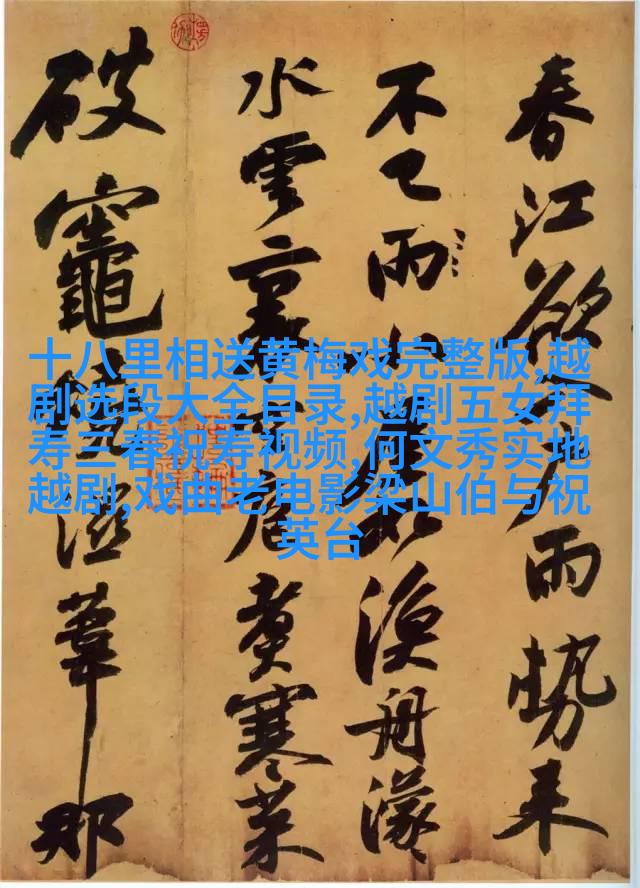 春江欲入戶雨勢来
不已雨小屋如漁舟濛
水雲裏空庖煮寒菜
破竈燒溼葦那
十八里相送黄梅戏完整版,越
剧选段大全目录,越剧五女拜
寿三春祝寿视频,何文秀实地
越剧,戏曲老电影梁山伯与祝
英台